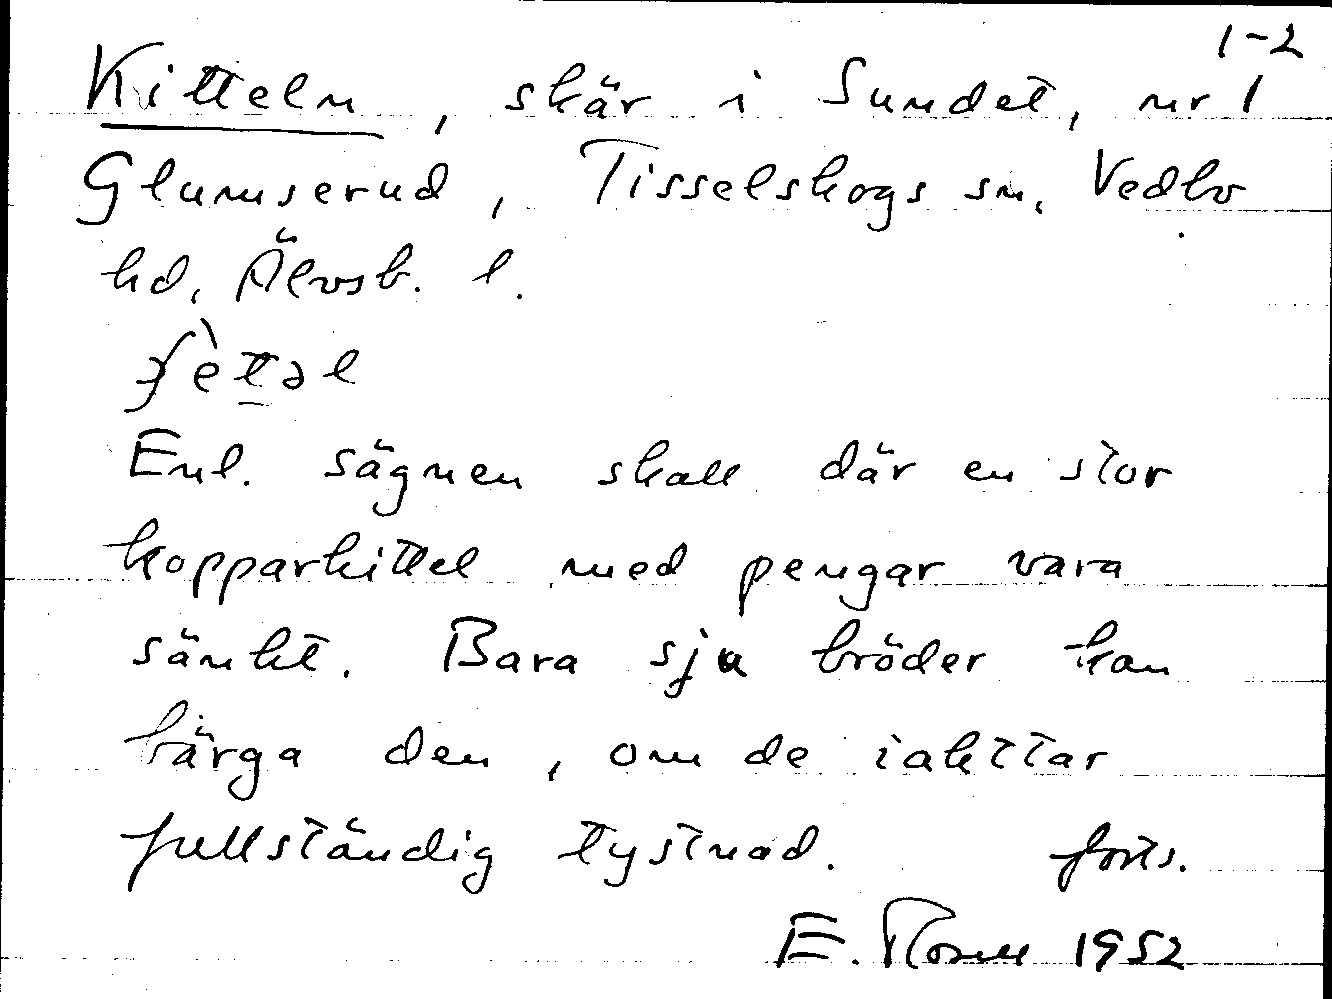 1-2
Kitteln, skär i Sundet, nr 1
Glumserud, Tisselskogs sn. Vedbo
hd, Älvsb. l.
Enl. sägnen skall där en stor
kopparkittel med pengar vara
sänkt. Bara sju bröder kan
bärga den, om de iakttar
fullständig tystnad. forts.
E. Rosell 1952